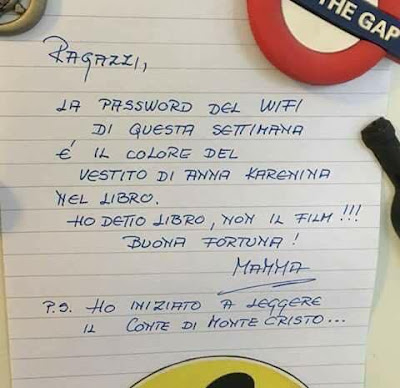 THE GAP
RAGAZZI,
LA PASSWORD DEL WIFI
DI QUESTA SETTIMANA
É IL COLORE DEL
VESTITO DI ANNA KARENINA
NEL LIBRO.
HO DETTO LIBRO, NON IL FILM!!!
BUONA FORTUNA!
MAMMA
P.S. HO INIZIATO A LEGGERE
IL CONTE DI MONTE CRISTO...